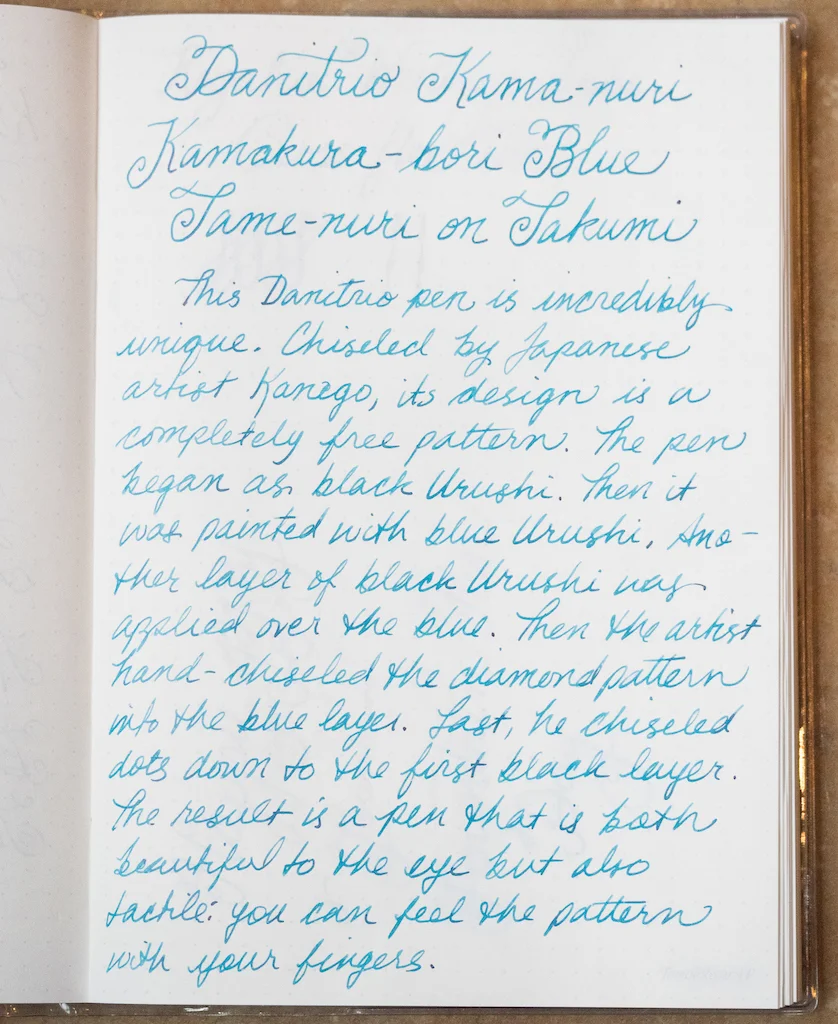 Danitrio Kama-nuri
Kamakura-bori Blue
Tame-nuri on Takumi
This Danitrio pen is incredibly
unique. Chiseled by Japanese
artist Kanego, its design is a
completely free pattern. The pen
began as black Urushi. Then it
was painted with blue Urushi. Ano-
ther layer of black Urushi was
applied over the blue. Then the artist
hand-chiseled the diamond pattern
into the blue layer. Last, he chiseled
dots down to the first black layer.
The result is a pen that is both
beautiful to the eye but also
tactile: you can feel the pattern
with your fingers.